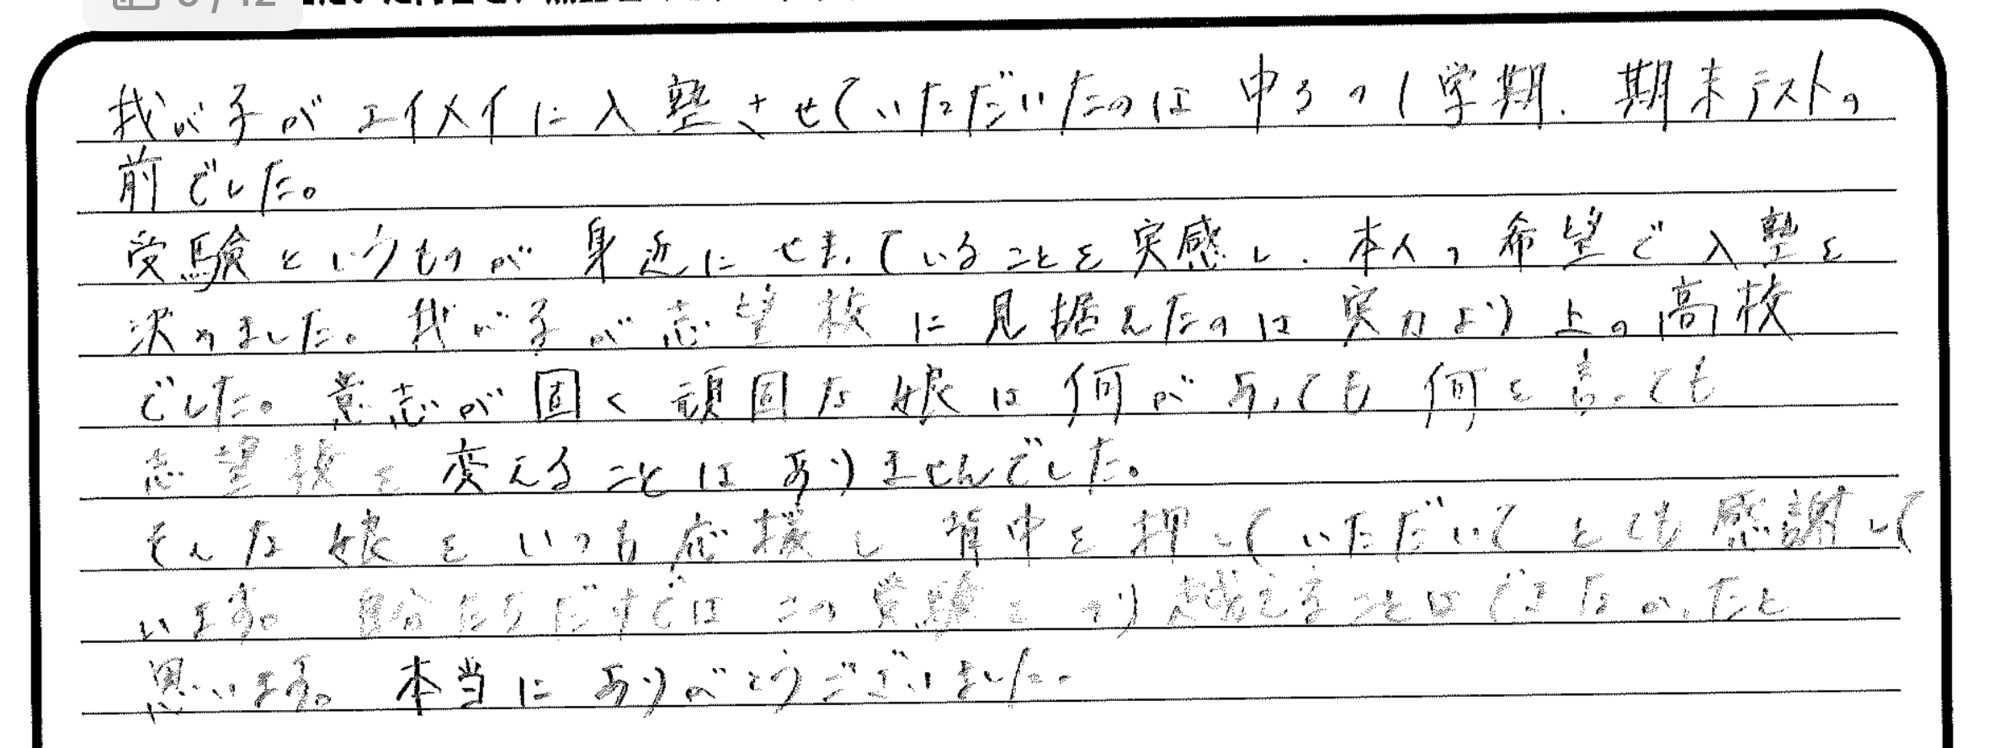 我が子がエイメイに入塾させていただいたのは中3の1学期、期末テストの
前でした。
受験というものが身近にせまっていることを実感し、本人の希望で入塾を
決めました。我が子が志望校に見据えたのは実力より上の高校
でした。意志が固く頑固な娘は何があっても何を言っても
志望校を変えることはありませんでした。
そんな娘をいつも応援し背中を押していただいてとても感謝して
います。自分たちだけではこの受験をのり越えることはできなかったと
思います。本当にありがとうございました。